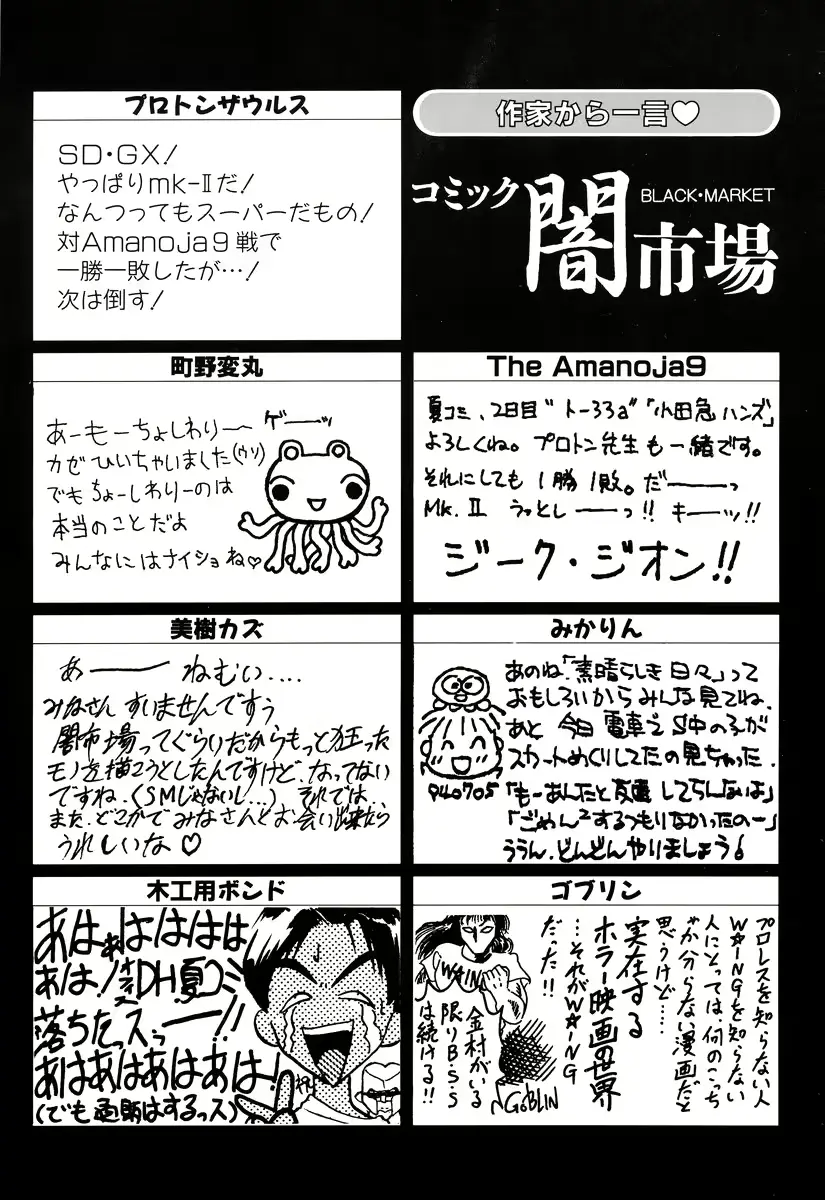 作家から一言♡
コミック
闇市場
BLACK・MARKET
プロトンザウルス
SD・GX!
やっぱりmk-Ⅱだ!
なんつってもスーパーだもの!
対Amanoja9戦で
一勝一敗したが…!
次は倒す!
The Amanoja9
夏コミ、2日目“トー33a”「小田急ハンズ」
よろしくね。プロトン先生も一緒です。
それにしても1勝1敗。だーーーっ
Mk.Ⅱ うっとしーーっ!! キーッ!!
ジーク・ジオン!!
町野変丸
あーもーちょしわりー
ゲーーッ
カゼひいちゃいました(ウソ)
でもちょーしわりーのは
本当のことだよ
みんなにはナイショね♡
美樹カズ
あーー ねむい....
みなさん すいませんですぅ
闇市場ってぐらいだからもっと狂った
モノを描こうとしたんですけど、なってない
ですね、(SMじゃないし...) それでは、
また、どこかでみなさんとお会い出来たら
うれしいな♡
みかりん
あのね、「素晴らしき日々」って
おもしろいからみんな見てね、
あと 今日 電車で S中の子が
スカートめくりしてたの見ちゃった.
940705
「もーあんたと友達してらんないよ」
「ごめん²するつもりなかったのー」
ううん、どんどんやりましょう!
木工用ボンド
あはぁははははは
あは!DH夏コミ
落ちたっスっーー!!
あはあはあはあは!
(でも通販はするっス)
ゴブリン
プロレスを知らない人
W★INGを知らない
人にとっては、何のこっち
ゃか分らない漫画だと
思うけど……
実在する
ホラー映画の世界
…それがW★ING
だった!!
WING
金村がいる
限りB・S・S
は続ける!!
GOBLIN